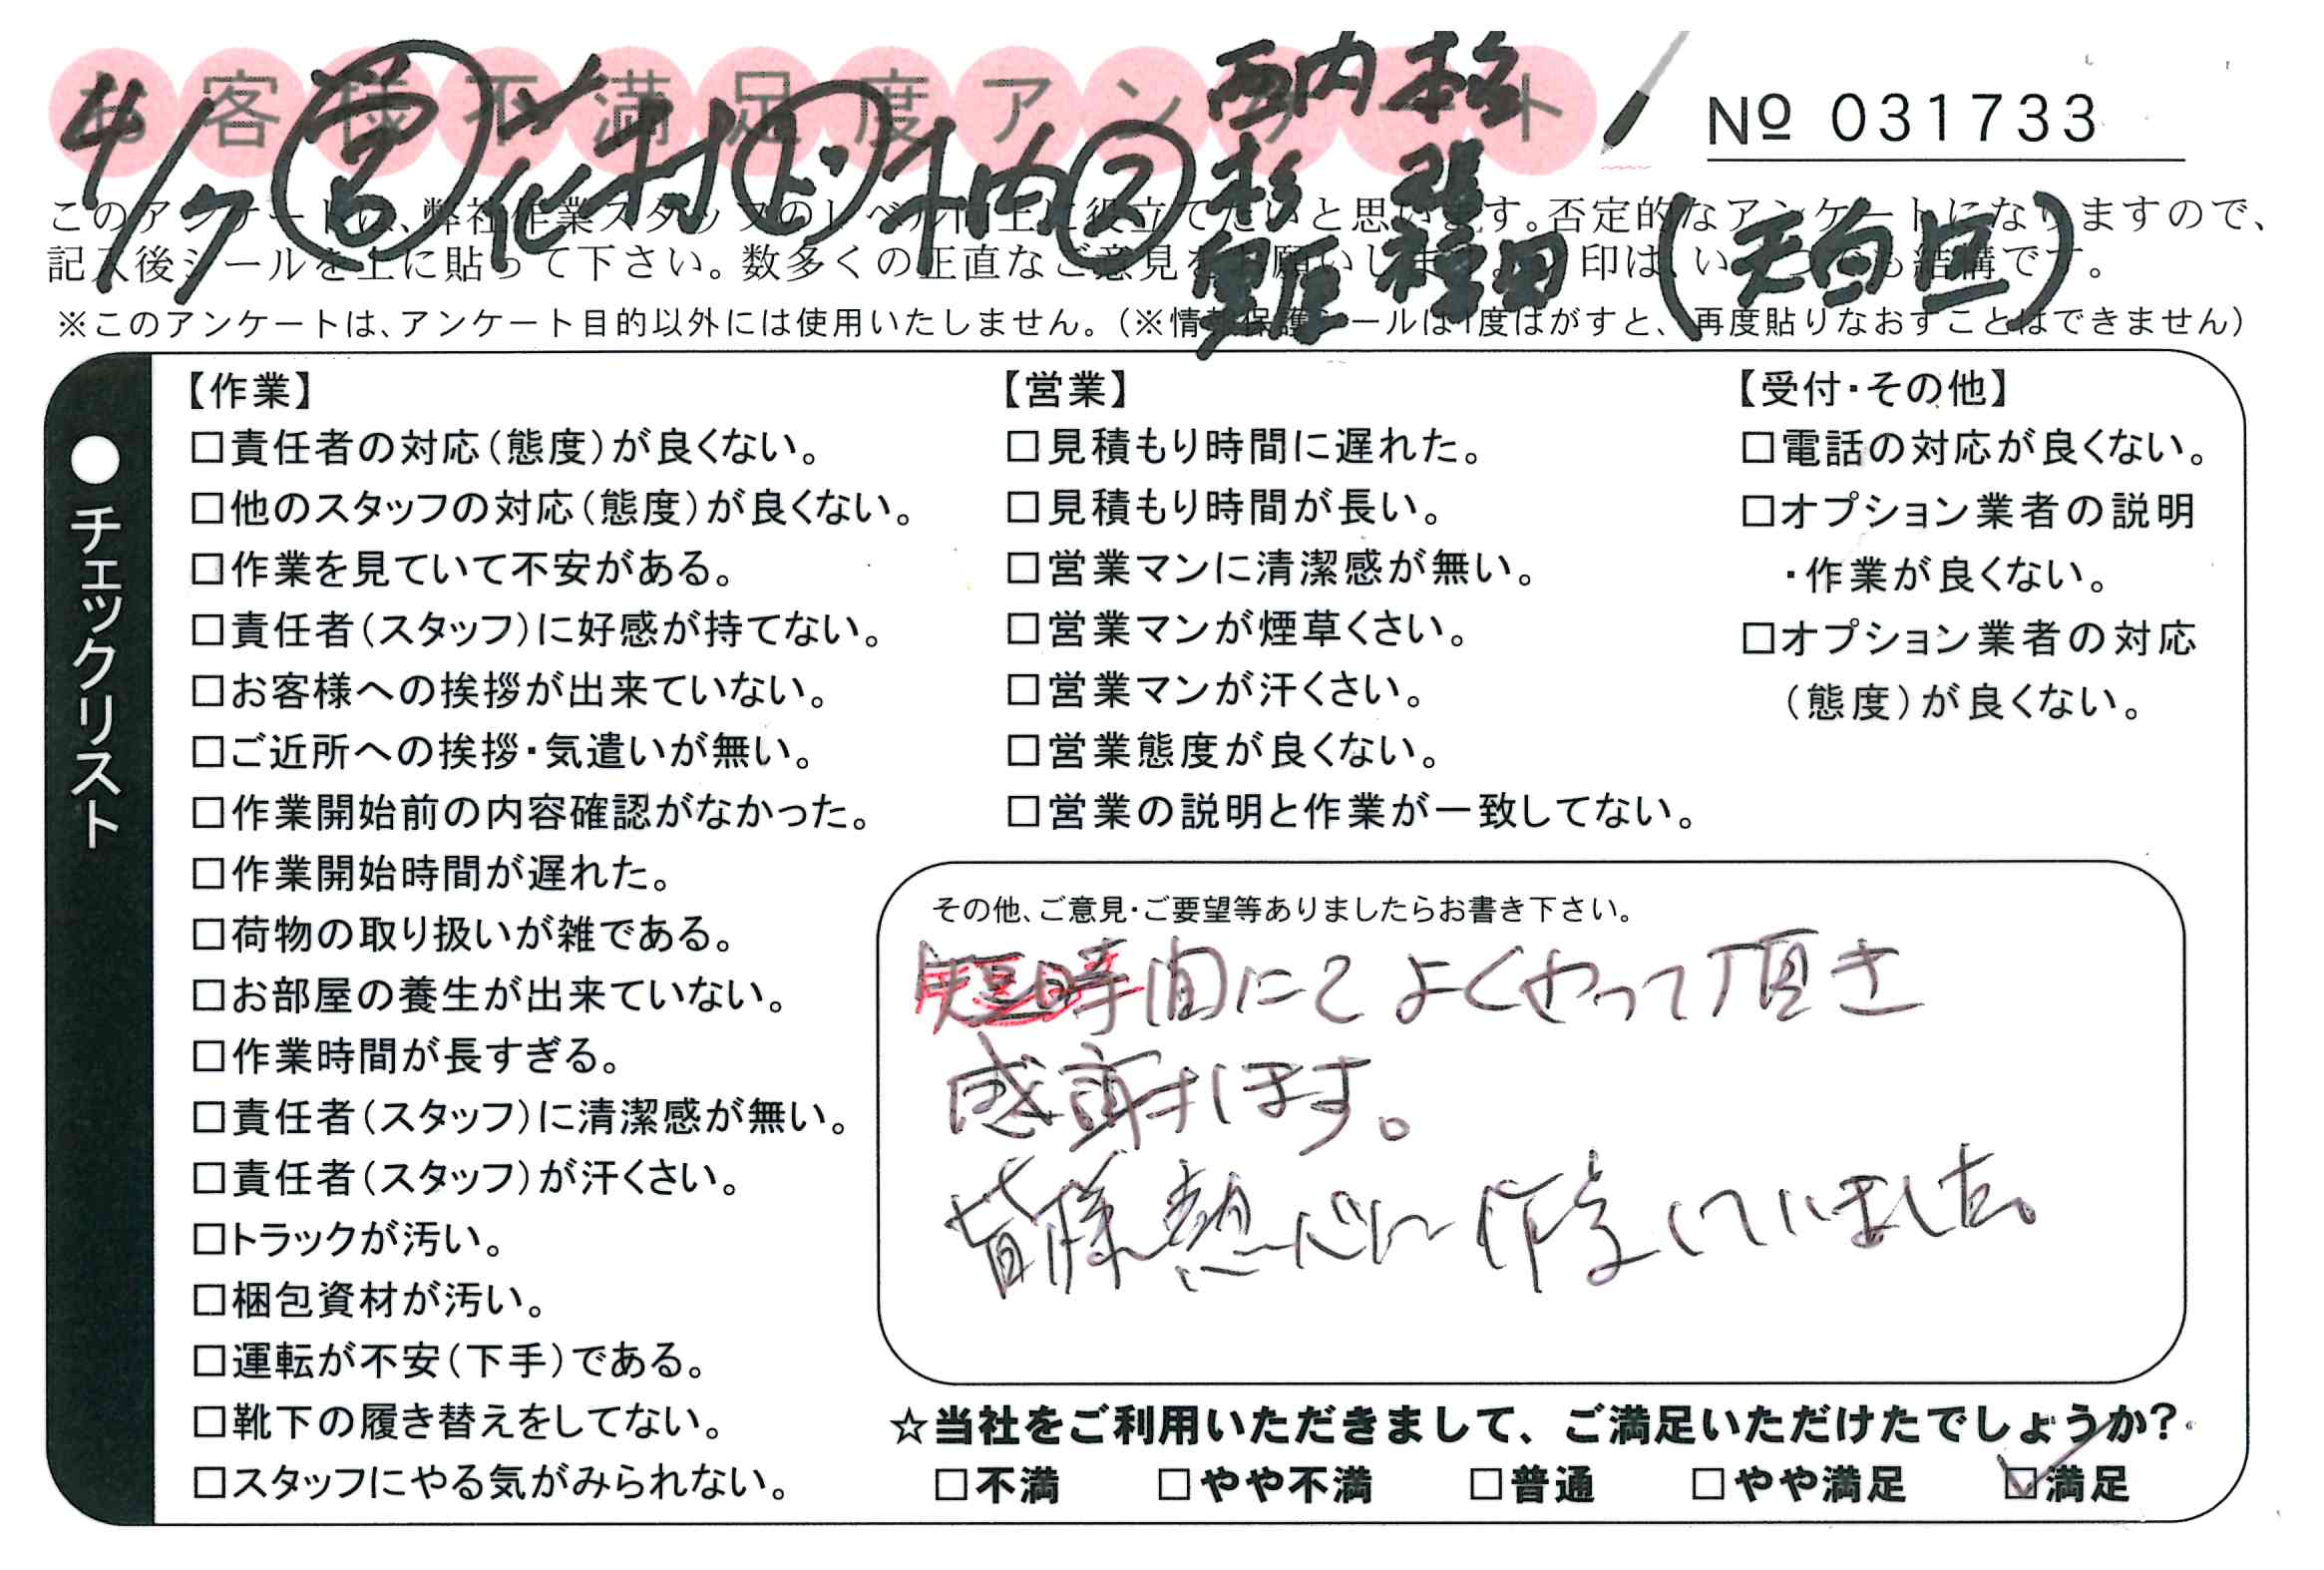 お客様不満足度アンケート
№ 031733
4/7 営 花村 ド 竹内 ス 西内 本松
杉 張
奥田 種田 (天白区)
このアンケートは、弊社作業スタッフのレベル向上に役立てたいと思います。否定的なアンケートになりますので、
記入後シールを上に貼って下さい。数多くの正直なご意見をお願いします。 印は、いくつでも結構です。
※このアンケートは、アンケート目的以外には使用いたしません。(※情報保護シールは1度はがすと、再度貼りなおすことはできません)
●チェックリスト
【作業】
□責任者の対応(態度)が良くない。
□他のスタッフの対応(態度)が良くない。
□作業を見ていて不安がある。
□責任者(スタッフ)に好感が持てない。
□お客様への挨拶が出来ていない。
□ご近所への挨拶・気遣いが無い。
□作業開始前の内容確認がなかった。
□作業開始時間が遅れた。
□荷物の取り扱いが雑である。
□お部屋の養生が出来ていない。
□作業時間が長すぎる。
□責任者(スタッフ)に清潔感が無い。
□責任者(スタッフ)が汗くさい。
□トラックが汚い。
□梱包資材が汚い。
□運転が不安(下手)である。
□靴下の履き替えをしてない。
□スタッフにやる気がみられない。
【営業】
□見積もり時間に遅れた。
□見積もり時間が長い。
□営業マンに清潔感が無い。
□営業マンが煙草くさい。
□営業マンが汗くさい。
□営業態度が良くない。
□営業の説明と作業が一致してない。
【受付・その他】
□電話の対応が良くない。
□オプション業者の説明
・作業が良くない。
□オプション業者の対応
(態度)が良くない。
その他、ご意見・ご要望等ありましたらお書き下さい。
短時間にて よくやって頂き
感謝します。
皆様熱心に 作業していました。
☆当社をご利用いただきまして、ご満足いただけたでしょうか?
□不満 □やや不満 □普通 □やや満足 ☑満足